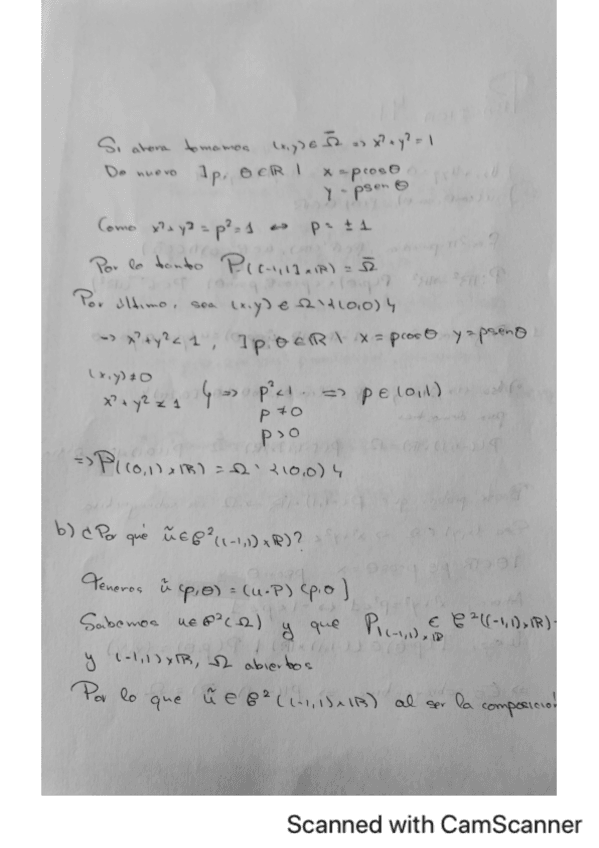 Si ahora tomamos (x,y) ∈ Ω̄ => x²+y² = 1
De nuevo ∃ρ, θ ∈ ℝ | x = ρcosθ
y = ρsenθ
Como x²+y² = ρ² = 1 <=> ρ = ±1
Por lo tanto P([-1,1]×ℝ) = Ω̄
Por último, sea (x,y) ∈ Ω\{(0,0)}
=> x²+y² < 1, ∃ρ,θ ∈ ℝ \ x = ρcosθ y = ρsenθ
(x,y) ≠ 0
x²+y² < 1 } => ρ² < 1. => ρ ∈ (0,1)
ρ ≠ 0
ρ > 0
=> P((0,1)×ℝ) = Ω\{(0,0)}
b) ¿Por qué ũ ∈ C²((-1,1)×ℝ)?
Tenemos ũ(ρ,θ) = (u∘P)(ρ,θ)
Sabemos u ∈ C²(Ω) y que P|(-1,1)×ℝ ∈ C²((-1,1)×ℝ)
y (-1,1)×ℝ, Ω abiertos
Por lo que ũ ∈ C²((-1,1)×ℝ) al ser la composició
Scanned with CamScanner